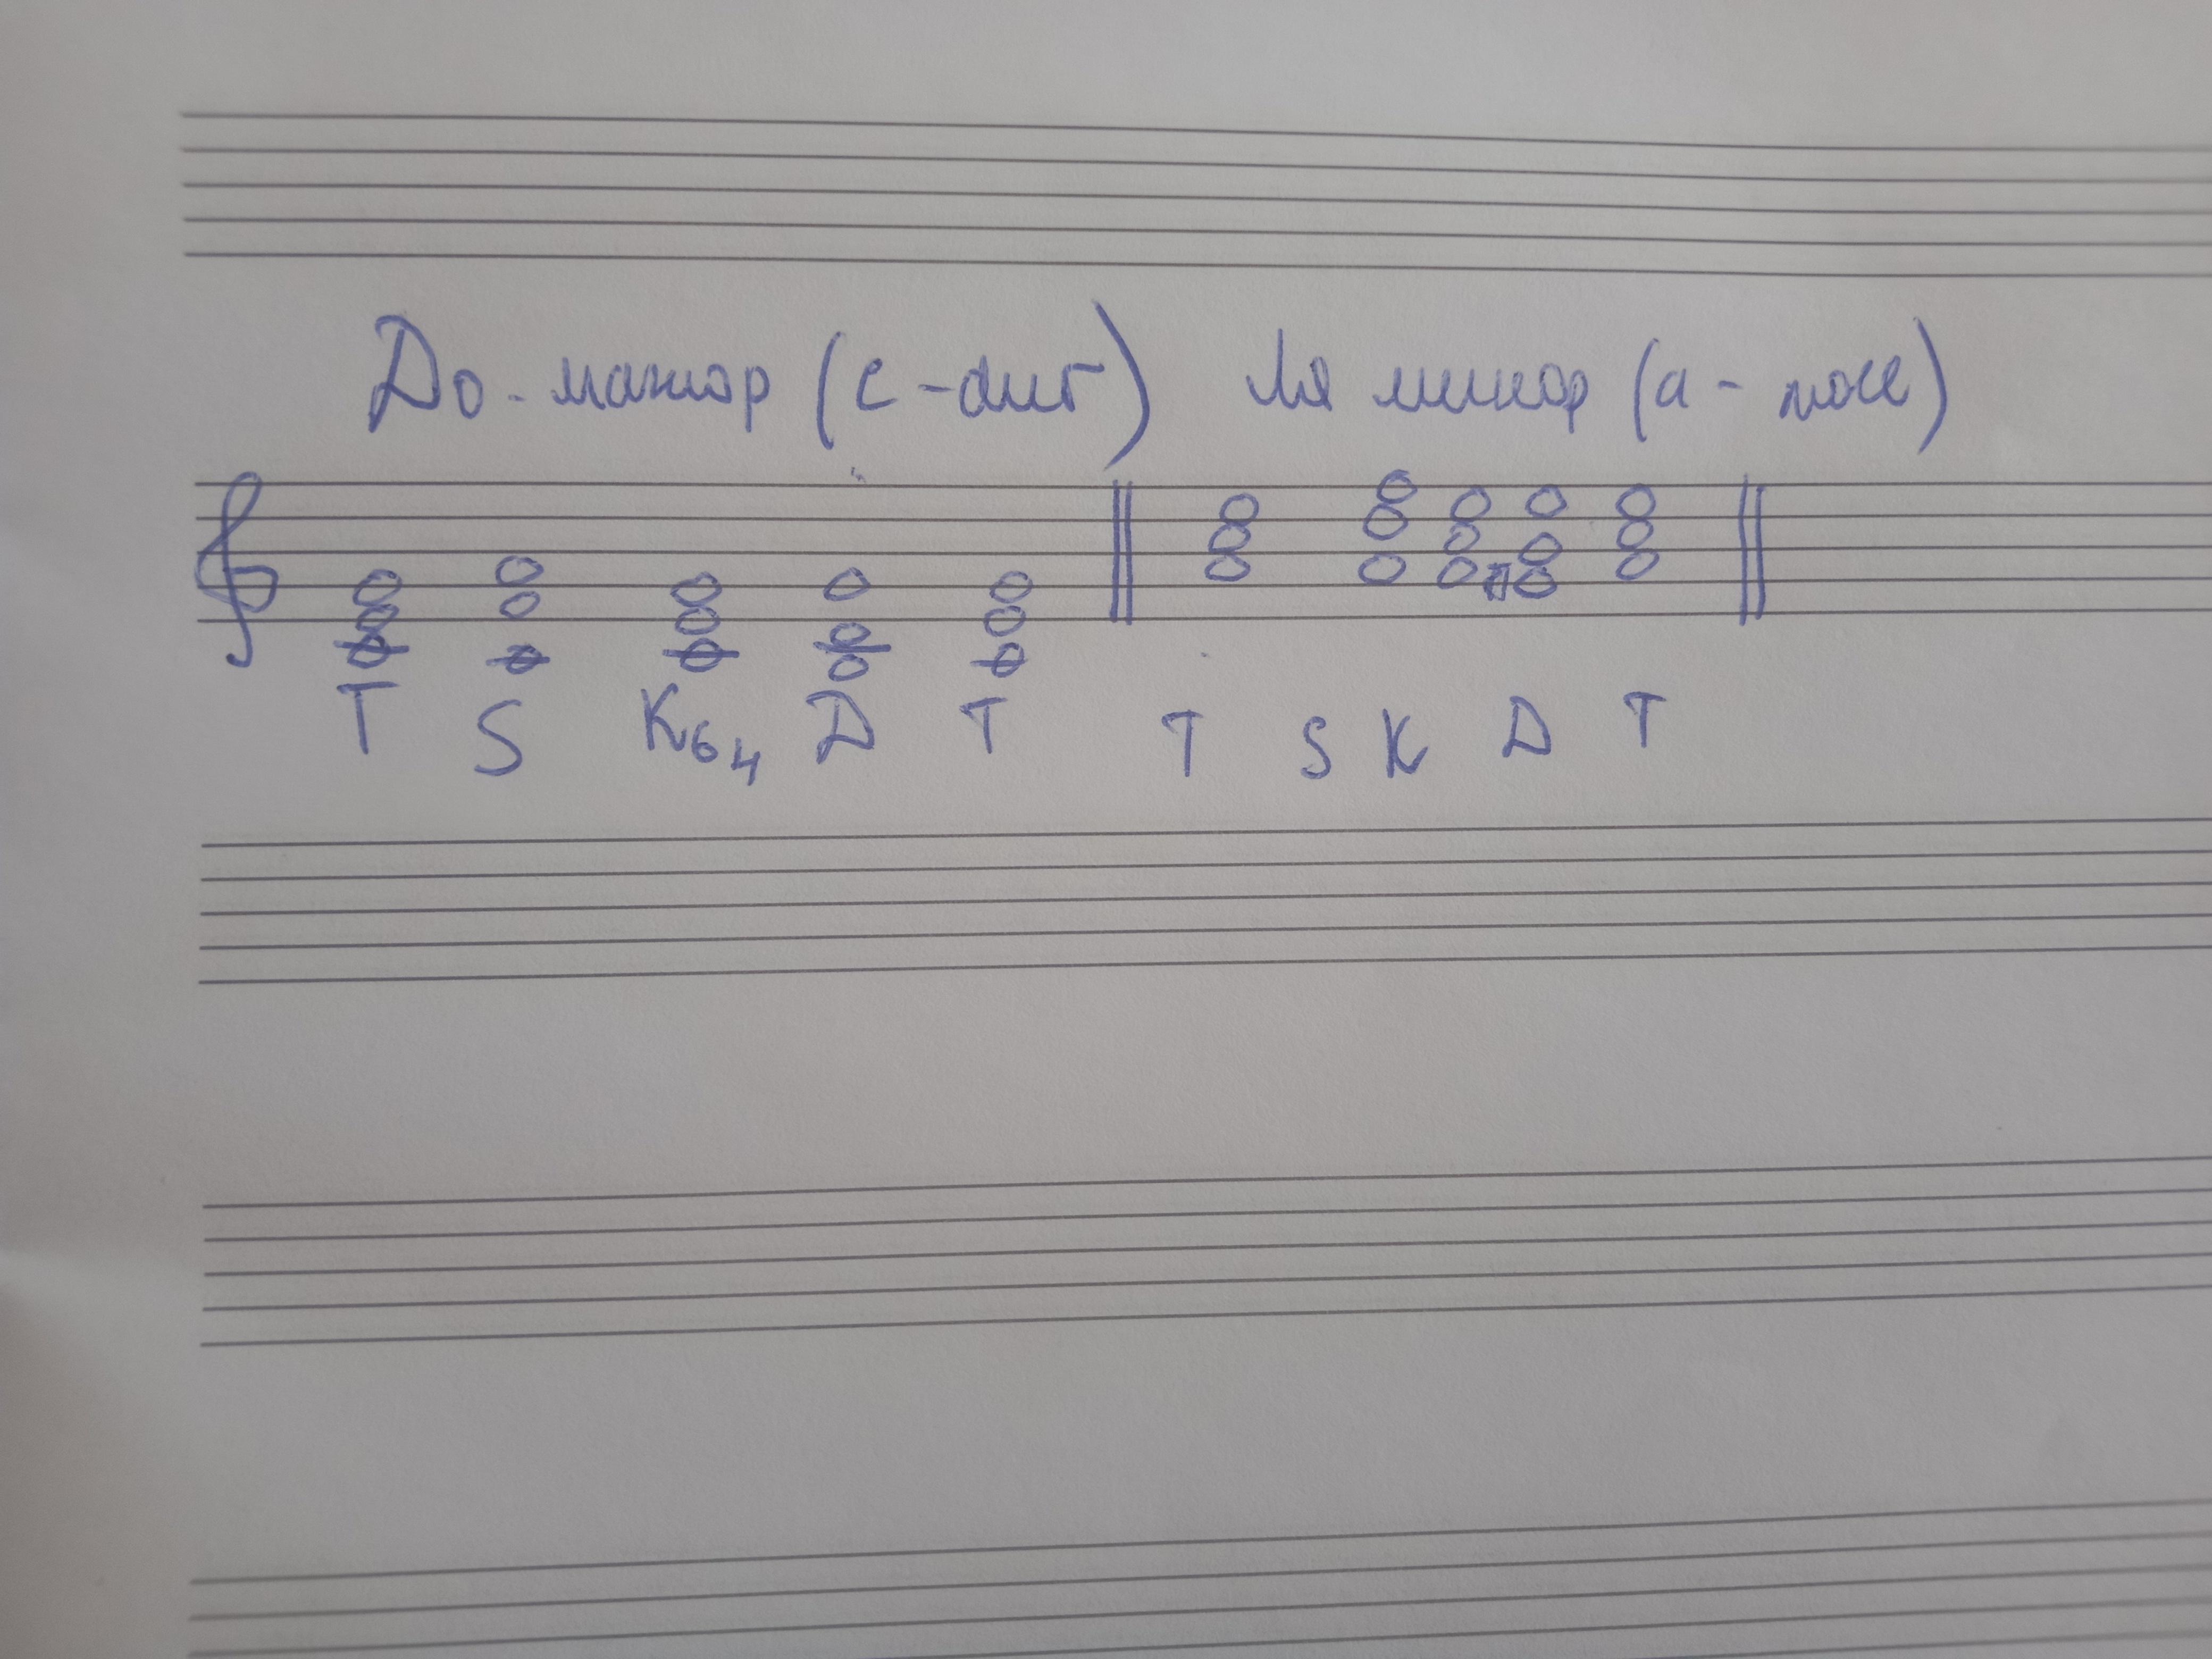 До-мажор (C-dur) ля минор (a-moll)
T S K6 4 D T T S K D T